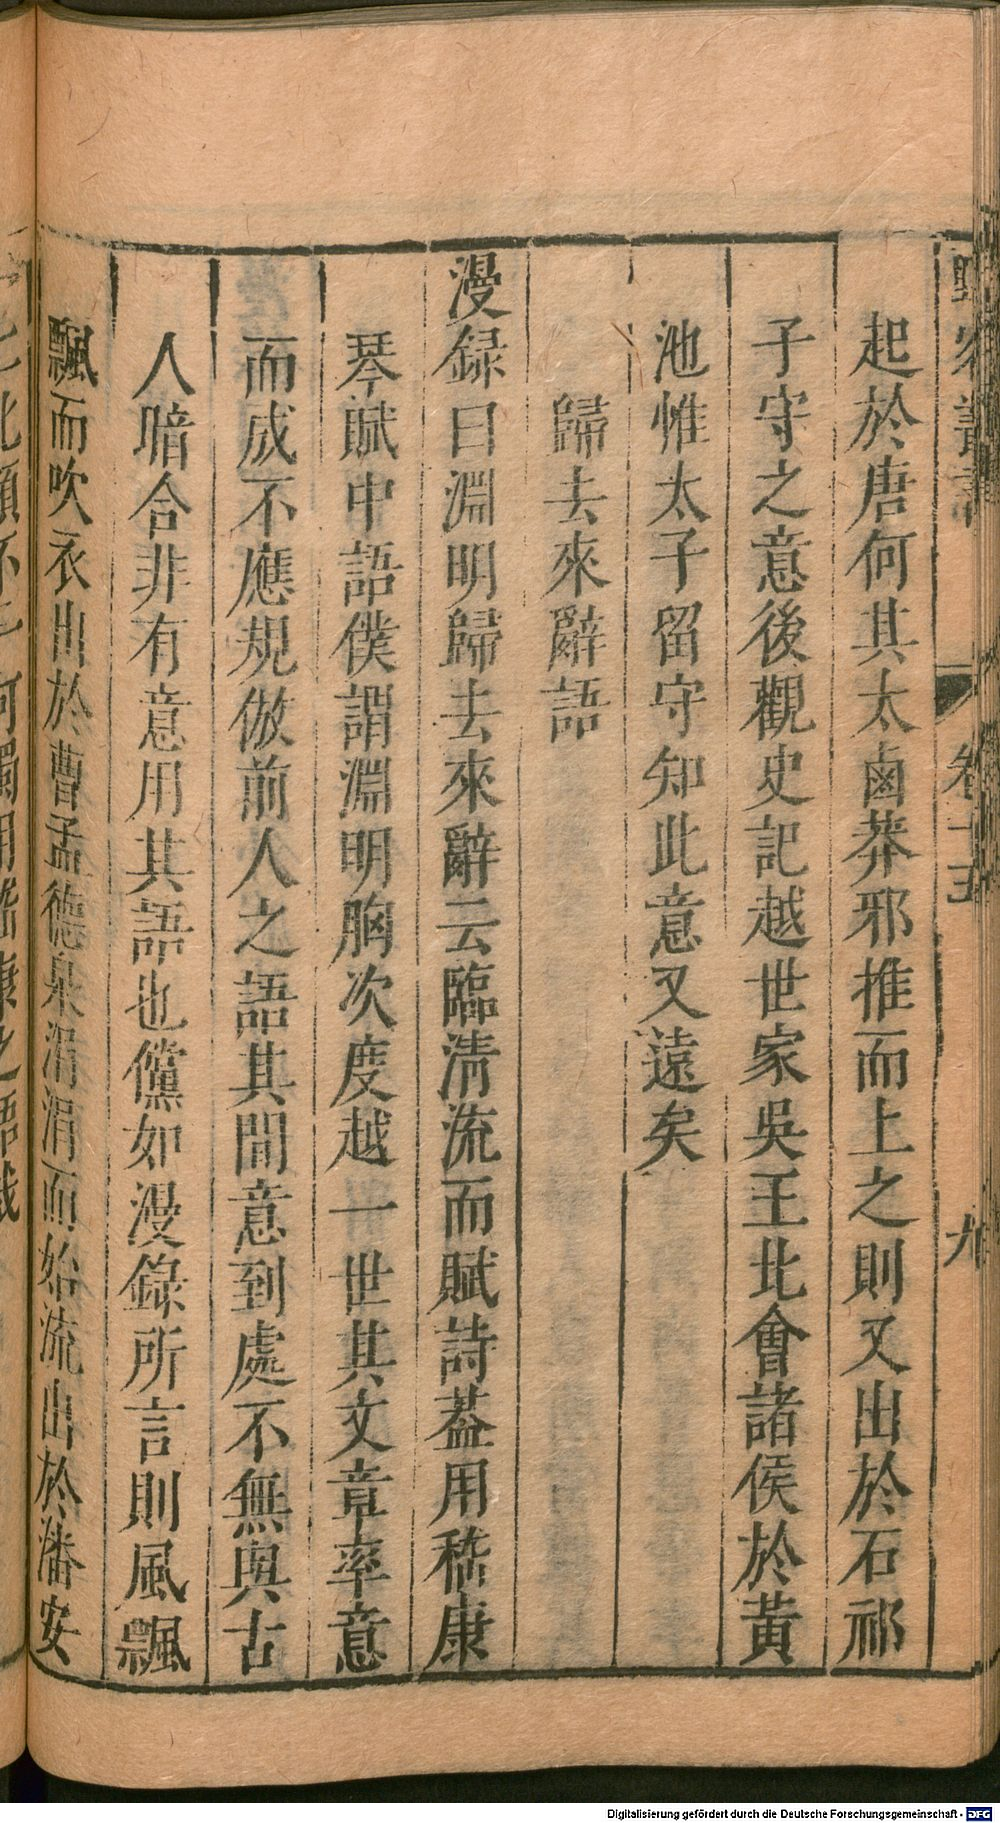 野客叢書 卷十五 九
起於唐何其太鹵莽邪推而上之則又出於石祁
子守之意後觀史記越世家吳王北會諸侯於黃
池惟太子留守知此意又遠矣
歸去來辭語
漫録曰淵明歸去來辭云臨清流而賦詩葢用嵇康
琴賦中語僕謂淵明胸次度越一世其文章率意
而成不應規倣前人之語其間意到處不無與古
人暗合非有意用其語也儻如漫錄所言則風飄
飄而吹衣出於曹孟德泉涓涓而始流出於潘安
Digitalisierung gefördert durch die Deutsche Forschungsgemeinschaft - DFG